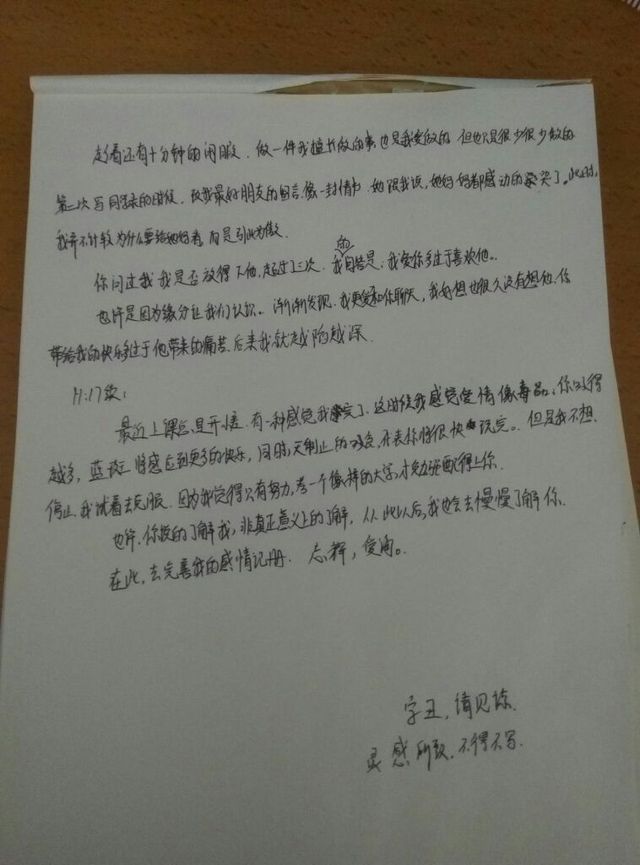 趁着还有十分钟的闲暇，做一件我擅长做的事也是我爱做的，但也只是很少很少做的
第一次写同学录的时候，给我最好朋友的留言像一封情书，她跟我说，她妈妈都感动的要哭了。此时，
我并不计较为什么要给她妈看，而是引此为傲
你问过我我是否放得下他，超过了三次，我的回答是：我爱你多过于喜欢他。
也许是因为缘分让我们认识。渐渐发现，我更爱和你聊天，我好想也很久没有想他，你
带给我的快乐多过于他带来的痛苦，后来我就越陷越深
11:17
最近上课总是开小差，有一种感觉我完了，这时候我感觉爱情像毒品，你
越多，将感觉到更多的快乐，同时，无制止的代表你将很快玩完。但是我不想
停止，我试着去克服。因为我觉得只有努力，考一个像样的大学，才勉强配得上你
也许，你真的了解我，非真正意义上的了解，从此以后，我也会去慢慢了解你
在此，去完善我的感情记册。
字丑，请见谅
灵感所致，不得不写